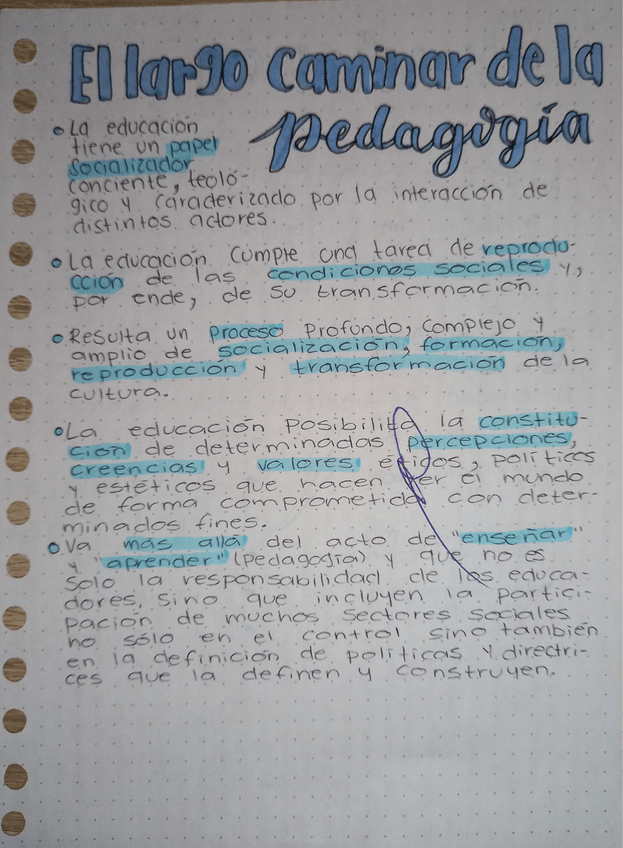 El largo caminar de la
pedagogía
• La educación
tiene un papel
socializador
conciente, teoló-
gico y caracterizado por la interacción de
distintos actores.
• La educación cumple una tarea de reprodu-
cción de las condiciones sociales y,
por ende, de su transformación.
• Resulta un proceso profundo, complejo y
amplio de socialización, formación,
reproducción y transformación de la
cultura.
• La educación posibilita la constitu-
ción de determinadas percepciones,
creencias y valores éticos, políticos
y estéticos que hacen ver el mundo
de forma comprometida con deter-
minados fines.
• Va más allá del acto de "enseñar"
y "aprender" (pedagogía) y que no es
solo la responsabilidad de los educa-
dores, sino que incluyen la partici-
pación de muchos sectores sociales
no sólo en el control sino también
en la definición de políticas y directri-
ces que la definen y construyen.